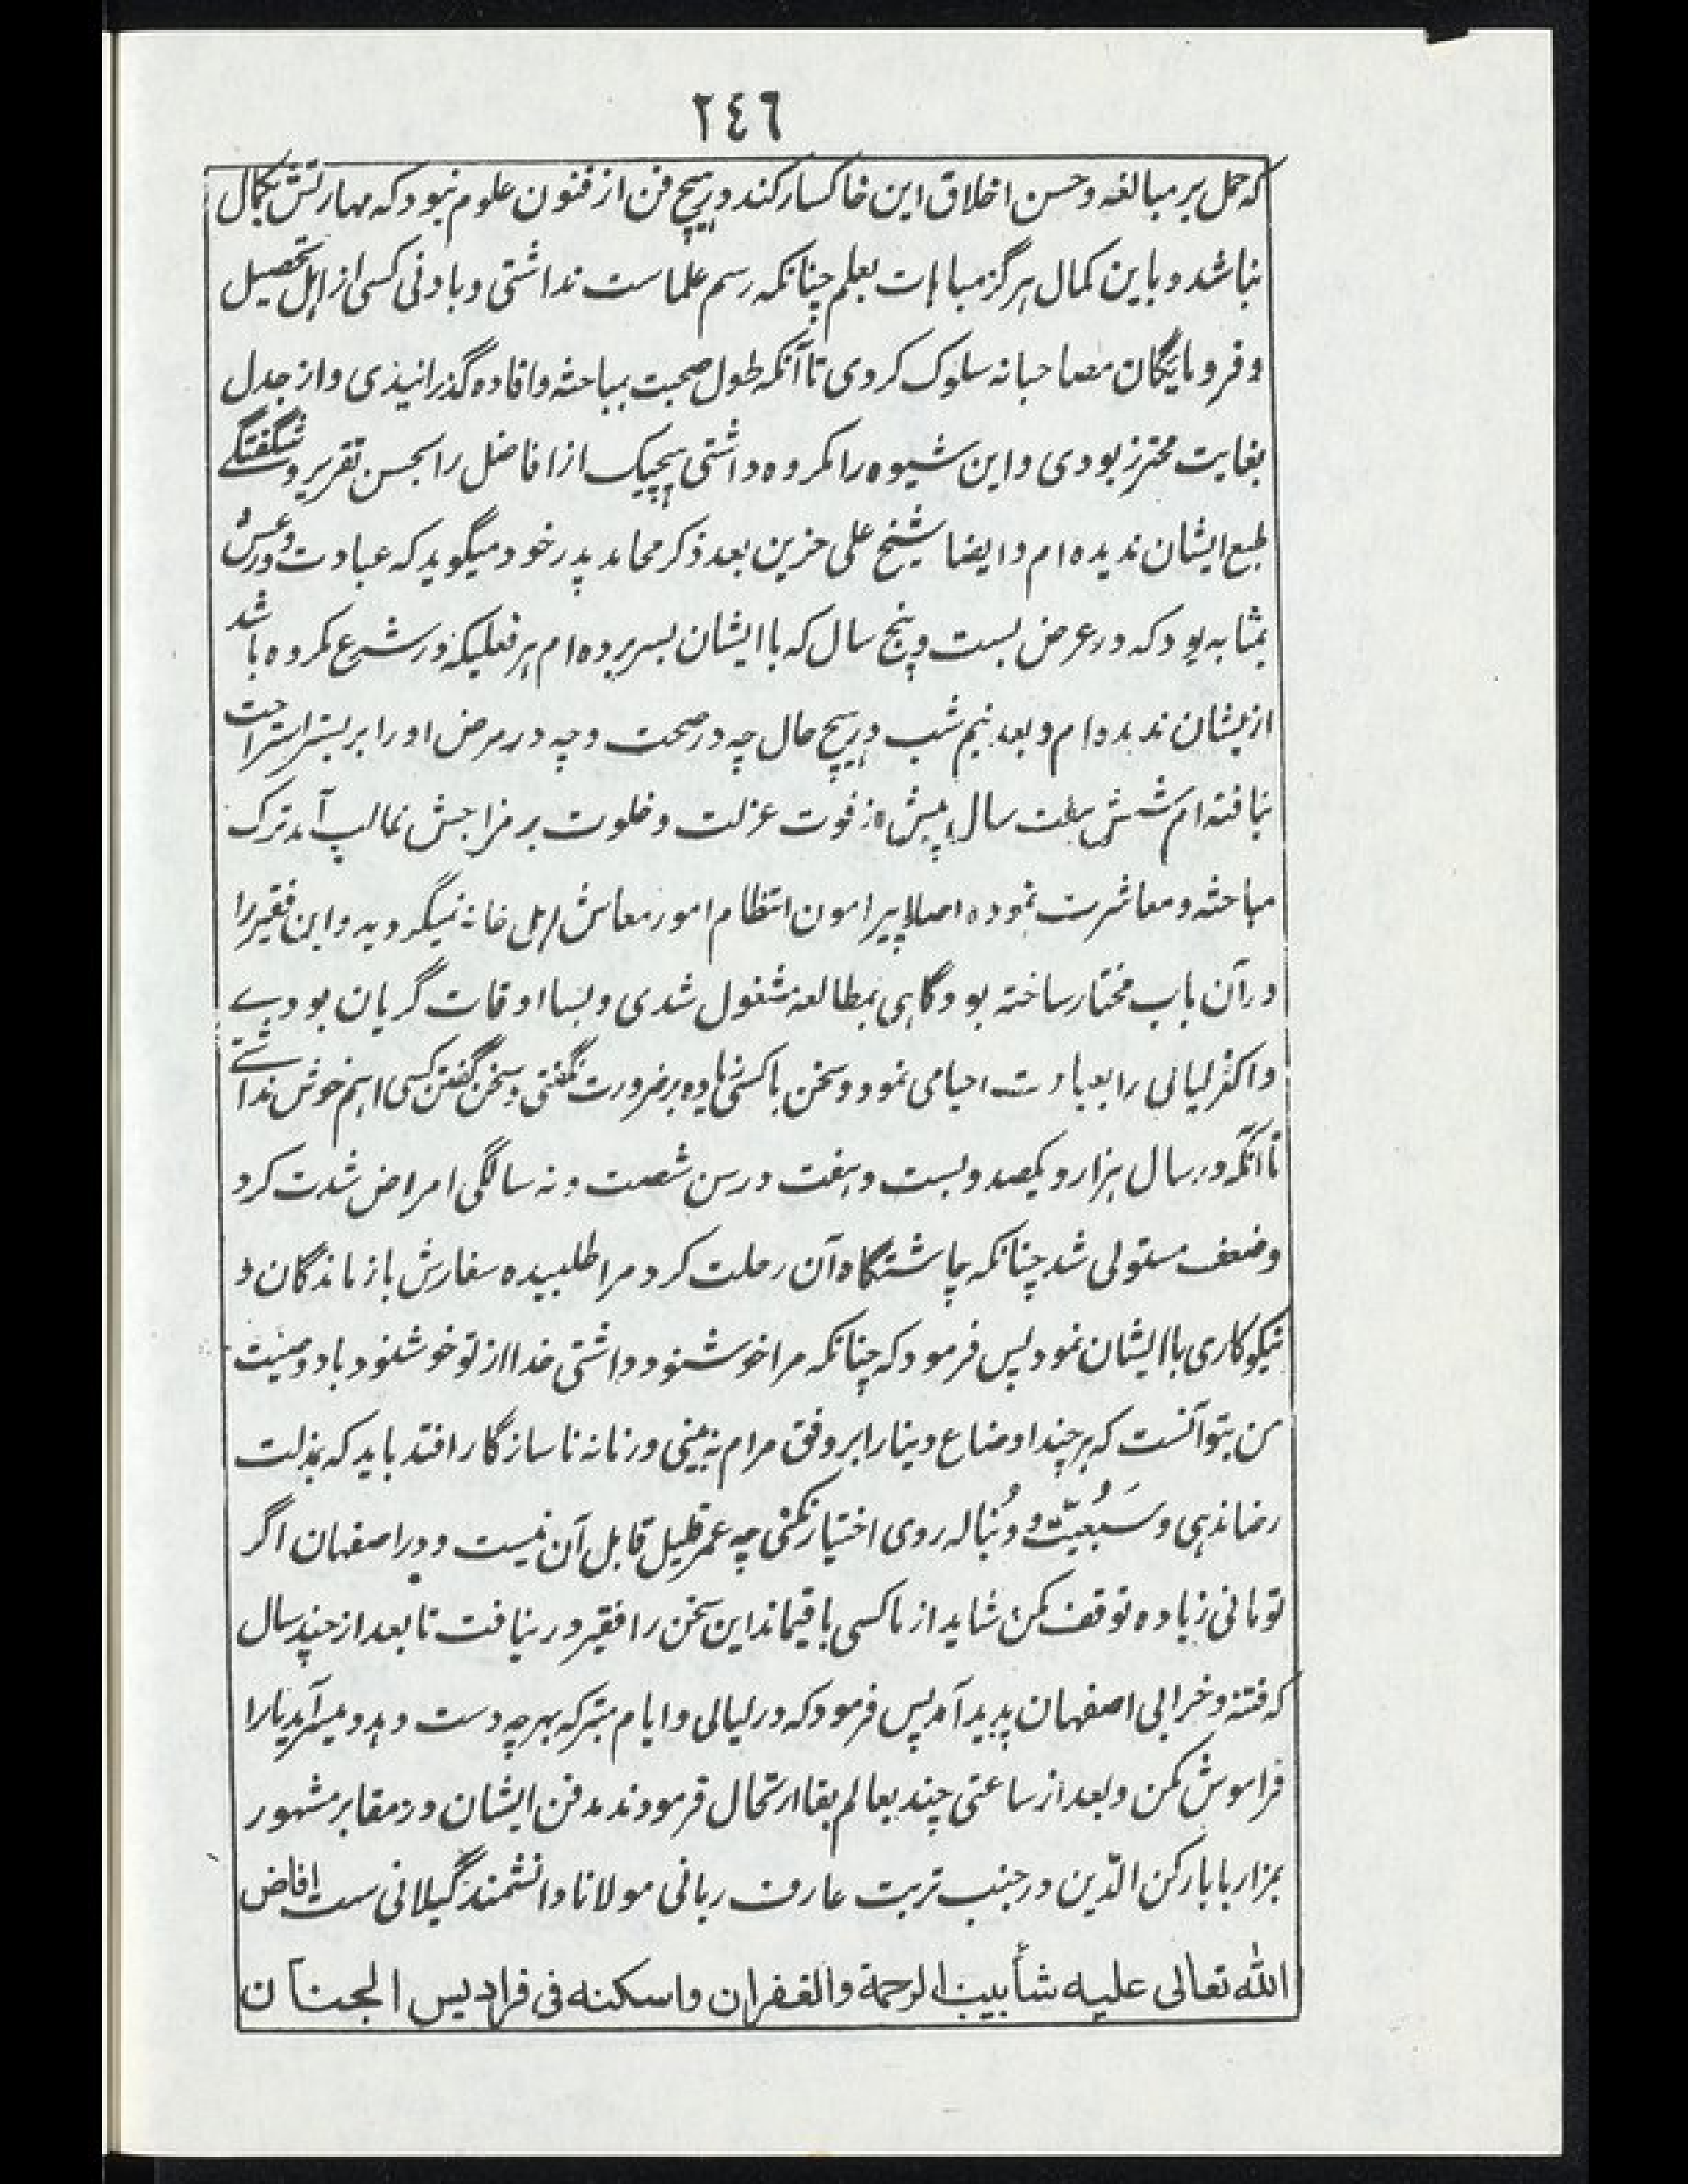 ٢٤٦
که حمل بر مبالغه و حسن اخلاق این خاکسار کند و در هیچ فن از فنون علوم نبود که مهارتش بکمال
نباشد و با این کمال هرگز مباهات بعلم چنانکه رسم علماست نداشتی و با ادنی کسی از اهل تحصیل
و فرومایگان مصاحبانه سلوک کردی تا آنکه طول صحبت بمباحثه و افاده گذرانیدی و از جدل
بغایت محترز بودی و این شیوه را مکروه داشتی هیچیک از افاضل را بحسن تقریر و شگفتگی
طبع ایشان ندیده ام و ایضا شیخ علی حزین بعد ذکر محامد پدر خود میگوید که عبادت و ورعش
بمثابه بود که در عرض بست و پنج سال که با ایشان بسر برده ام هر فعلیکه در شرع مکروه باشد
از یشان ندیده ام و بعد نیم شب در هیچ حال چه در صحت و چه در مرض او را بر بستر استراحت
نیافته ام شش هفت سال پیش از فوت عزلت و خلوت بر مزاجش غالب آمد ترک
مباحثه و معاشرت نموده اصلا پیرامون انتظام امور معاش اهل خانه نمیگردید و این فقیر را
در آن باب مختار ساخته بود گاهی بمطالعه مشغول شدی و بسا اوقات گریان بودے
و اکثر لیالی را بعبادت احیا می نمود و سخن با کسی زیاده بر ضرورت نگفتی و سخن گفتن کسی را هم خوش نداشتے
تا آنکه در سال هزار و یکصد و بست و هفت در سن شصت و نه سالگی امراض شدت کرد
و ضعف مستولی شد چنانکه چاشتگاه آن رحلت کرد مرا طلبیده سفارش بازماندگان و
نیکوکاری با ایشان نمود پس فرمود که چنانکه مرا خوشنود داشتی خدا از تو خوشنود باد وصیت
من بتو آنست که هر چند اوضاع دنیا را بر وفق مرام نه بینی و زمانه ناسازگار افتد باید که بمذلت
رضا ندهی و سَبُعیّت و دُنباله روی اختیار نکنی چه عمر قلیل قابل آن نیست و در اصفهان اگر
تومانی زیاده توقف مکن شاید از ما کسی باقیماند این سخن را فقیر در نیافت تا بعد از چند سال
که فتنه و خرابی اصفهان پدید آمد پس فرمود که در لیالی و ایام متبرکه بهر چه دست دهد و میسر آید یارا
فراموش مکن و بعد از ساعتی چند بعالم بقا ارتحال فرمودند مدفن ایشان در مقابر مشهور
بمزار بابا رکن الدّین در جنب تربت عارف ربانی مولانا دانشمند گیلانی ست افاض
الله تعالی علیه شأبیب الرحمة والغفران واسکنه فی فرادیس الجنان